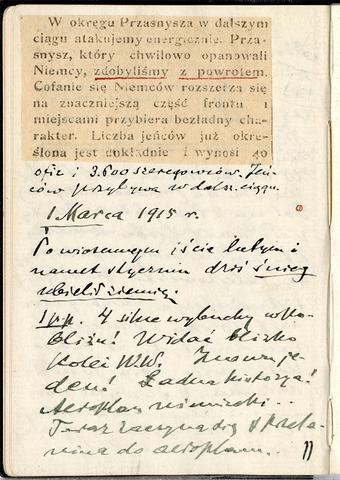 W okręgu Przasnysza w dalszym
ciągu atakujemy energicznie. Prza-
snysz, który chwilowo opanowali
Niemcy, zdobyliśmy z powrotem.
Cofanie się Niemców rozszerza się
na znaczniejszą część frontu i
miejscami przybiera bezładny cha-
rakter. Liczba jeńców już okre-
ślona jest dokładnie i wynosi 40
ofic i 3.600 szeregowców. Jeń-
ców przybywa w dalsz. ciągu.
1 Marca 1915 r.
Po wiosennym iście lutym i
nawet styczniu dziś śnieg
ubielił ziemię.
1 pp. 4 silne wybuchy w po-
bliżu! Widać blisko
kolei W.W. Znowu je-
den! Ładna historya!
Aeroplan niemiecki...
Teraz zaczyna się strzela-
nina do aeroplanu...
11